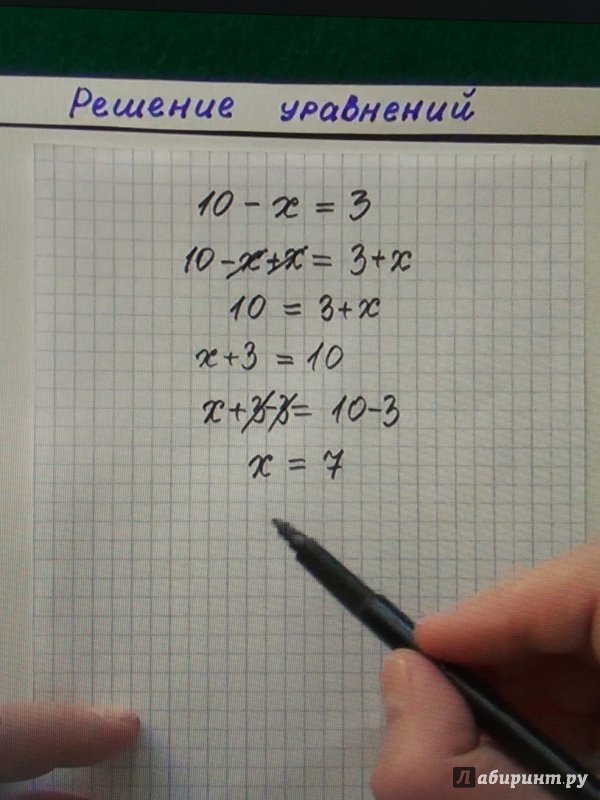 Решение уравнений
10 - x = 3
10 - x + x = 3 + x
10 = 3 + x
x + 3 = 10
x + 3 - 3 = 10 - 3
x = 7
Лабиринт.ру